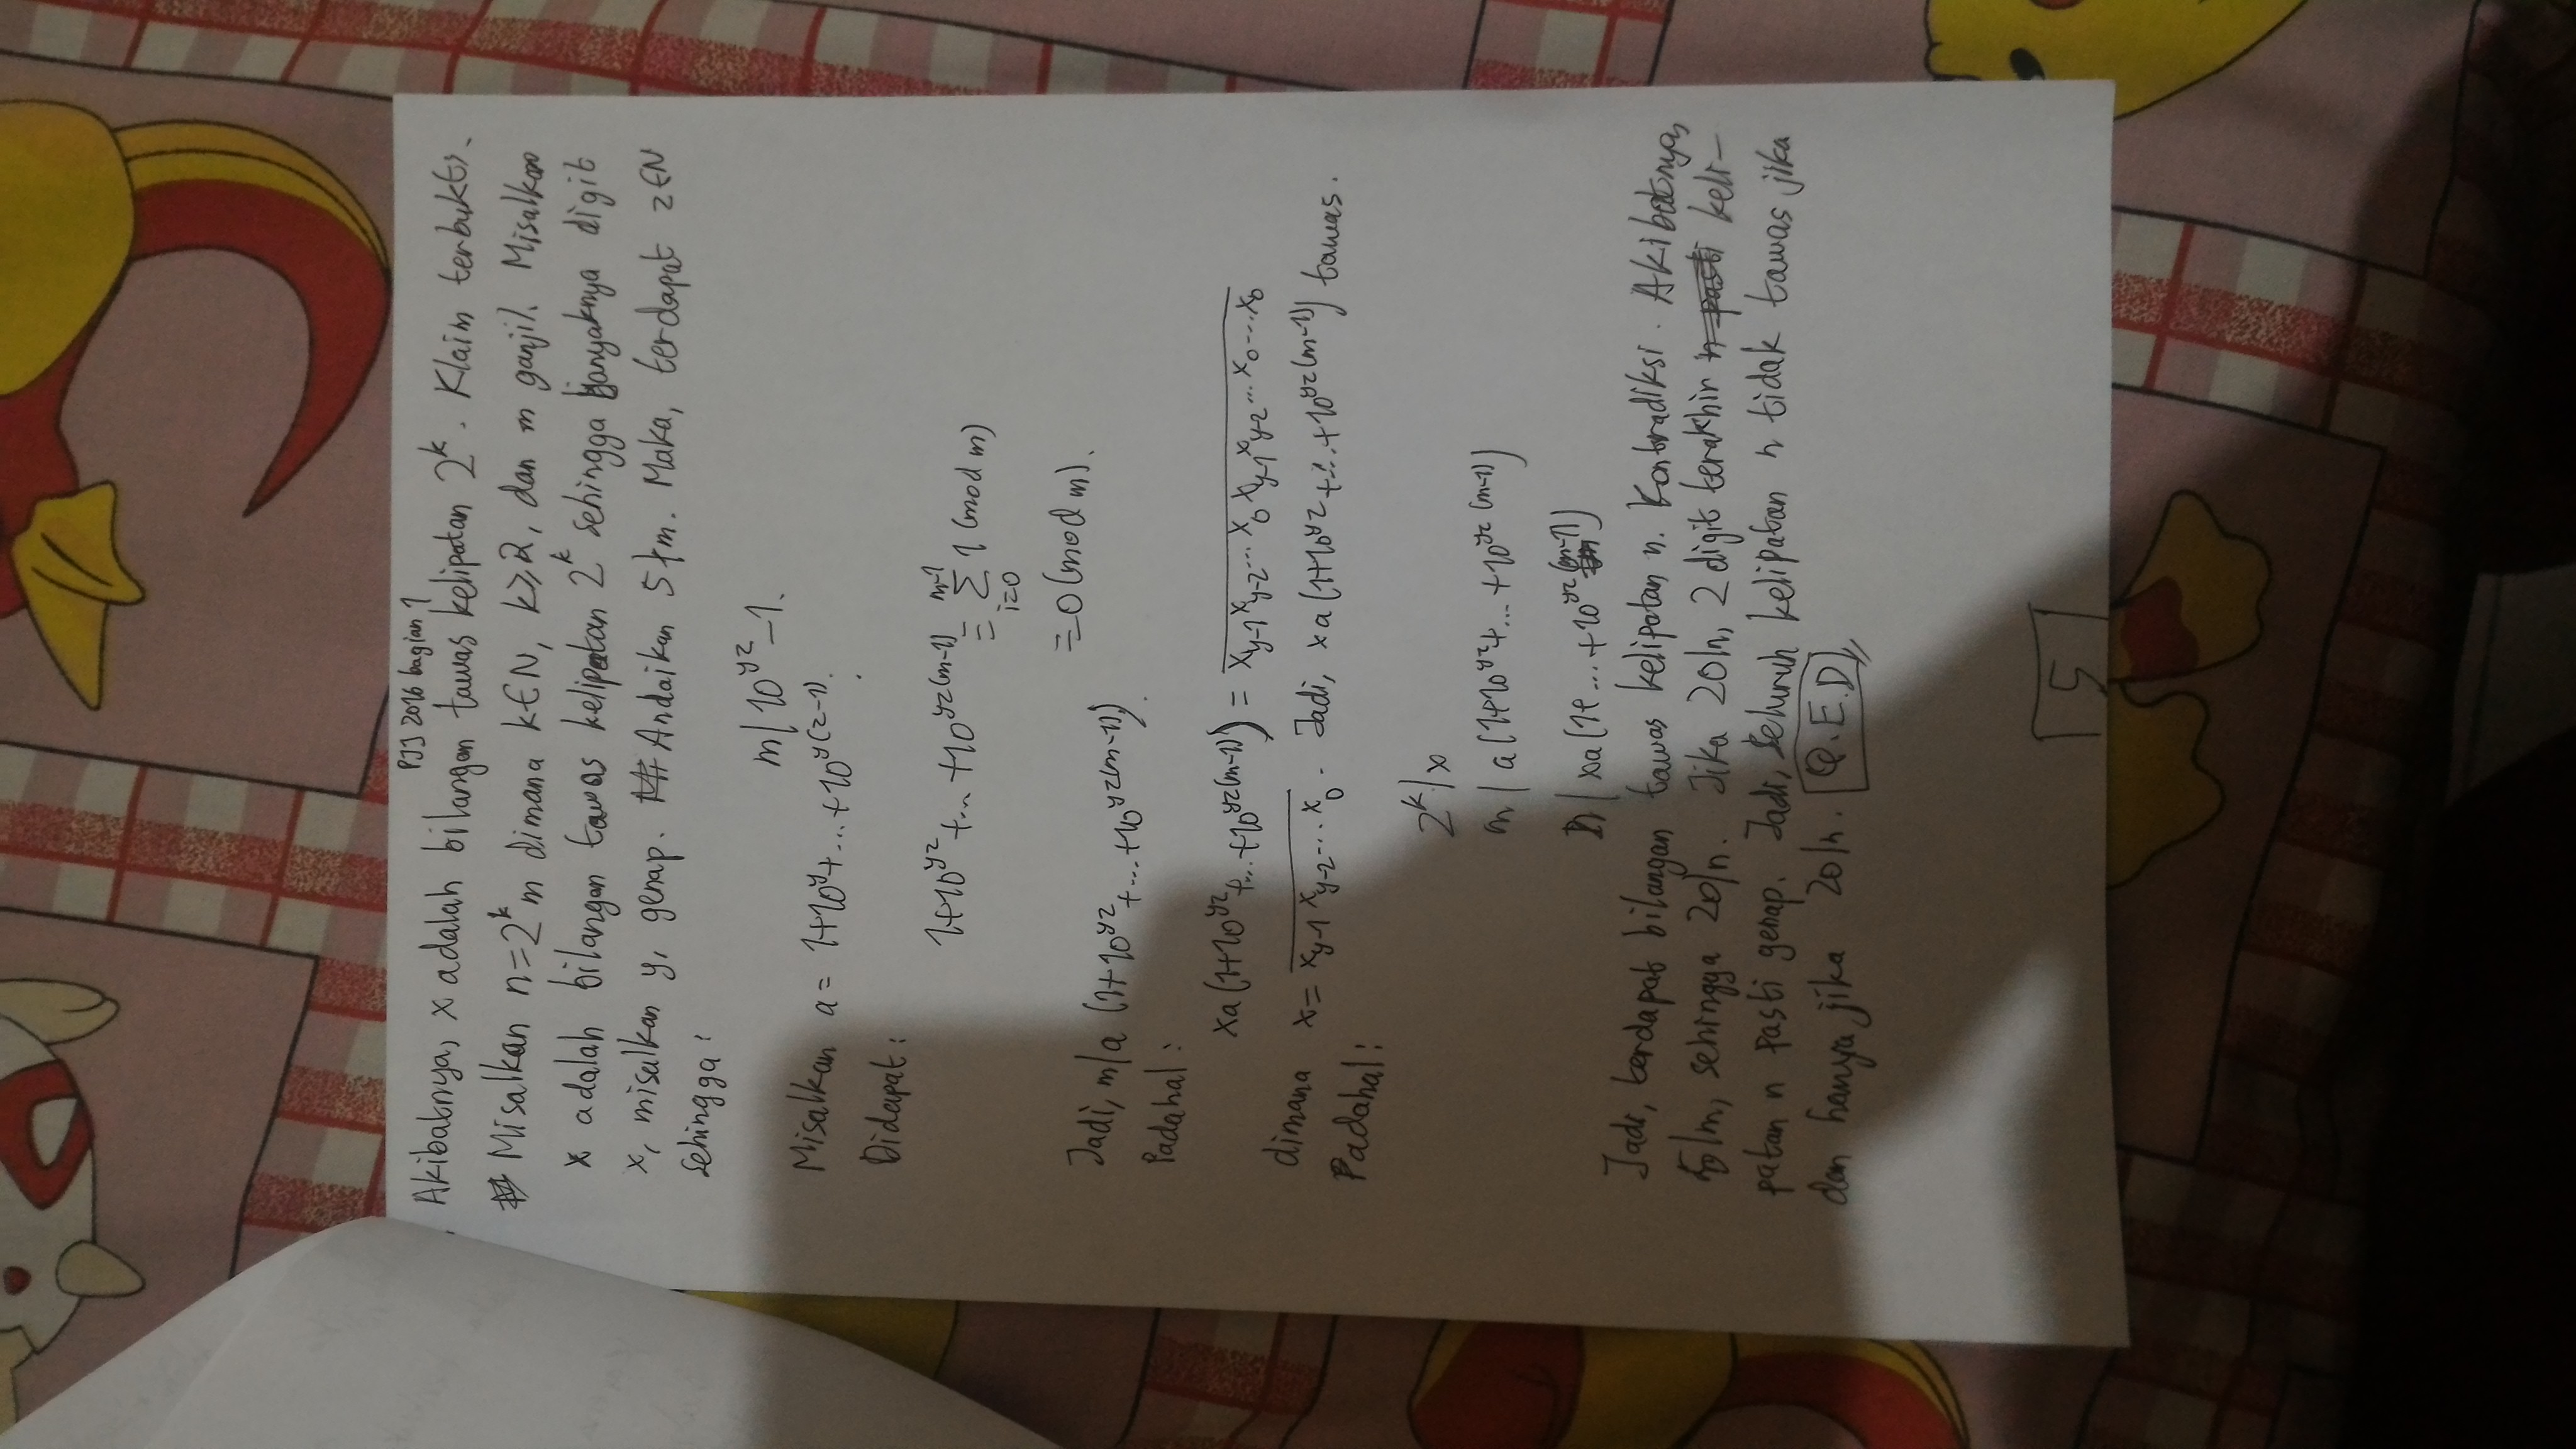 PJJ 2016 bagian 1
Akibatnya, x adalah bilangan tawas kelipatan 2^k. Klaim terbukti.
Misalkan n=2^k m dimana k∈N, k≥2, dan m ganjil. Misalkan
x adalah bilangan tawas kelipatan 2^k sehingga banyaknya digit
x, misalkan y, genap. Andaikan 5∤m. Maka, terdapat z∈N
sehingga:
m|10^{yz}-1.
Misalkan a = 1+10^y+...+10^{y(z-1)}.
Didapat:
1+10^{yz}+...+10^{yz(m-1)} ≡ \sum_{i=0}^{m-1} 1 (mod m)
≡0 (mod m).
Jadi, m|a (1+10^{yz}+...+10^{yz(m-1)}).
Padahal:
xa(1+10^{yz}+...+10^{yz(m-1)}) = \overline{x_{y-1}x_{y-2}...x_0x_{y-1}x_{y-2}...x_0...x_0}
dimana x = \overline{x_{y-1}x_{y-2}...x_0}. Jadi, xa(1+10^{yz}+...+10^{yz(m-1)}) tawas.
Padahal:
2^k|x
m|a(1+10^{yz}+...+10^{yz(m-1)})
n|xa(1+...+10^{yz(m-1)})
Jadi, terdapat bilangan tawas kelipatan n. Kontradiksi. Akibatnya,
5|m, sehingga 20|n. Jika 20|n, 2 digit terakhir keli-
patan n pasti genap. Jadi, seluruh kelipatan n tidak tawas jika
dan hanya jika 20|n. Q.E.D
5